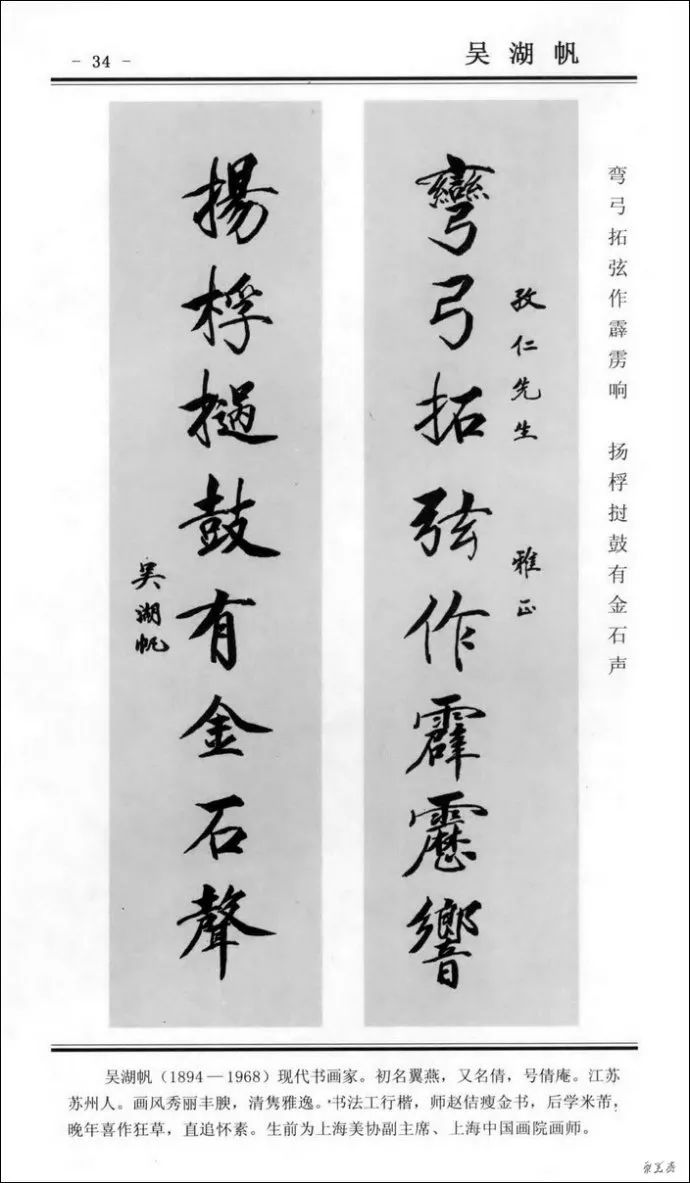 - 34 -
吴湖帆
弯弓拓弦作霹雳响 扬桴挝鼓有金石声
孜仁先生 雅正
彎弓拓弦作霹靂響
揚桴撾鼓有金石聲
吳湖帆
吴湖帆(1894—1968)现代书画家。初名翼燕,又名倩,号倩庵。江苏
苏州人。画风秀丽丰腴,清隽雅逸。书法工行楷,师赵佶瘦金书,后学米芾,
晚年喜作狂草,直追怀素。生前为上海美协副主席、上海中国画院画师。